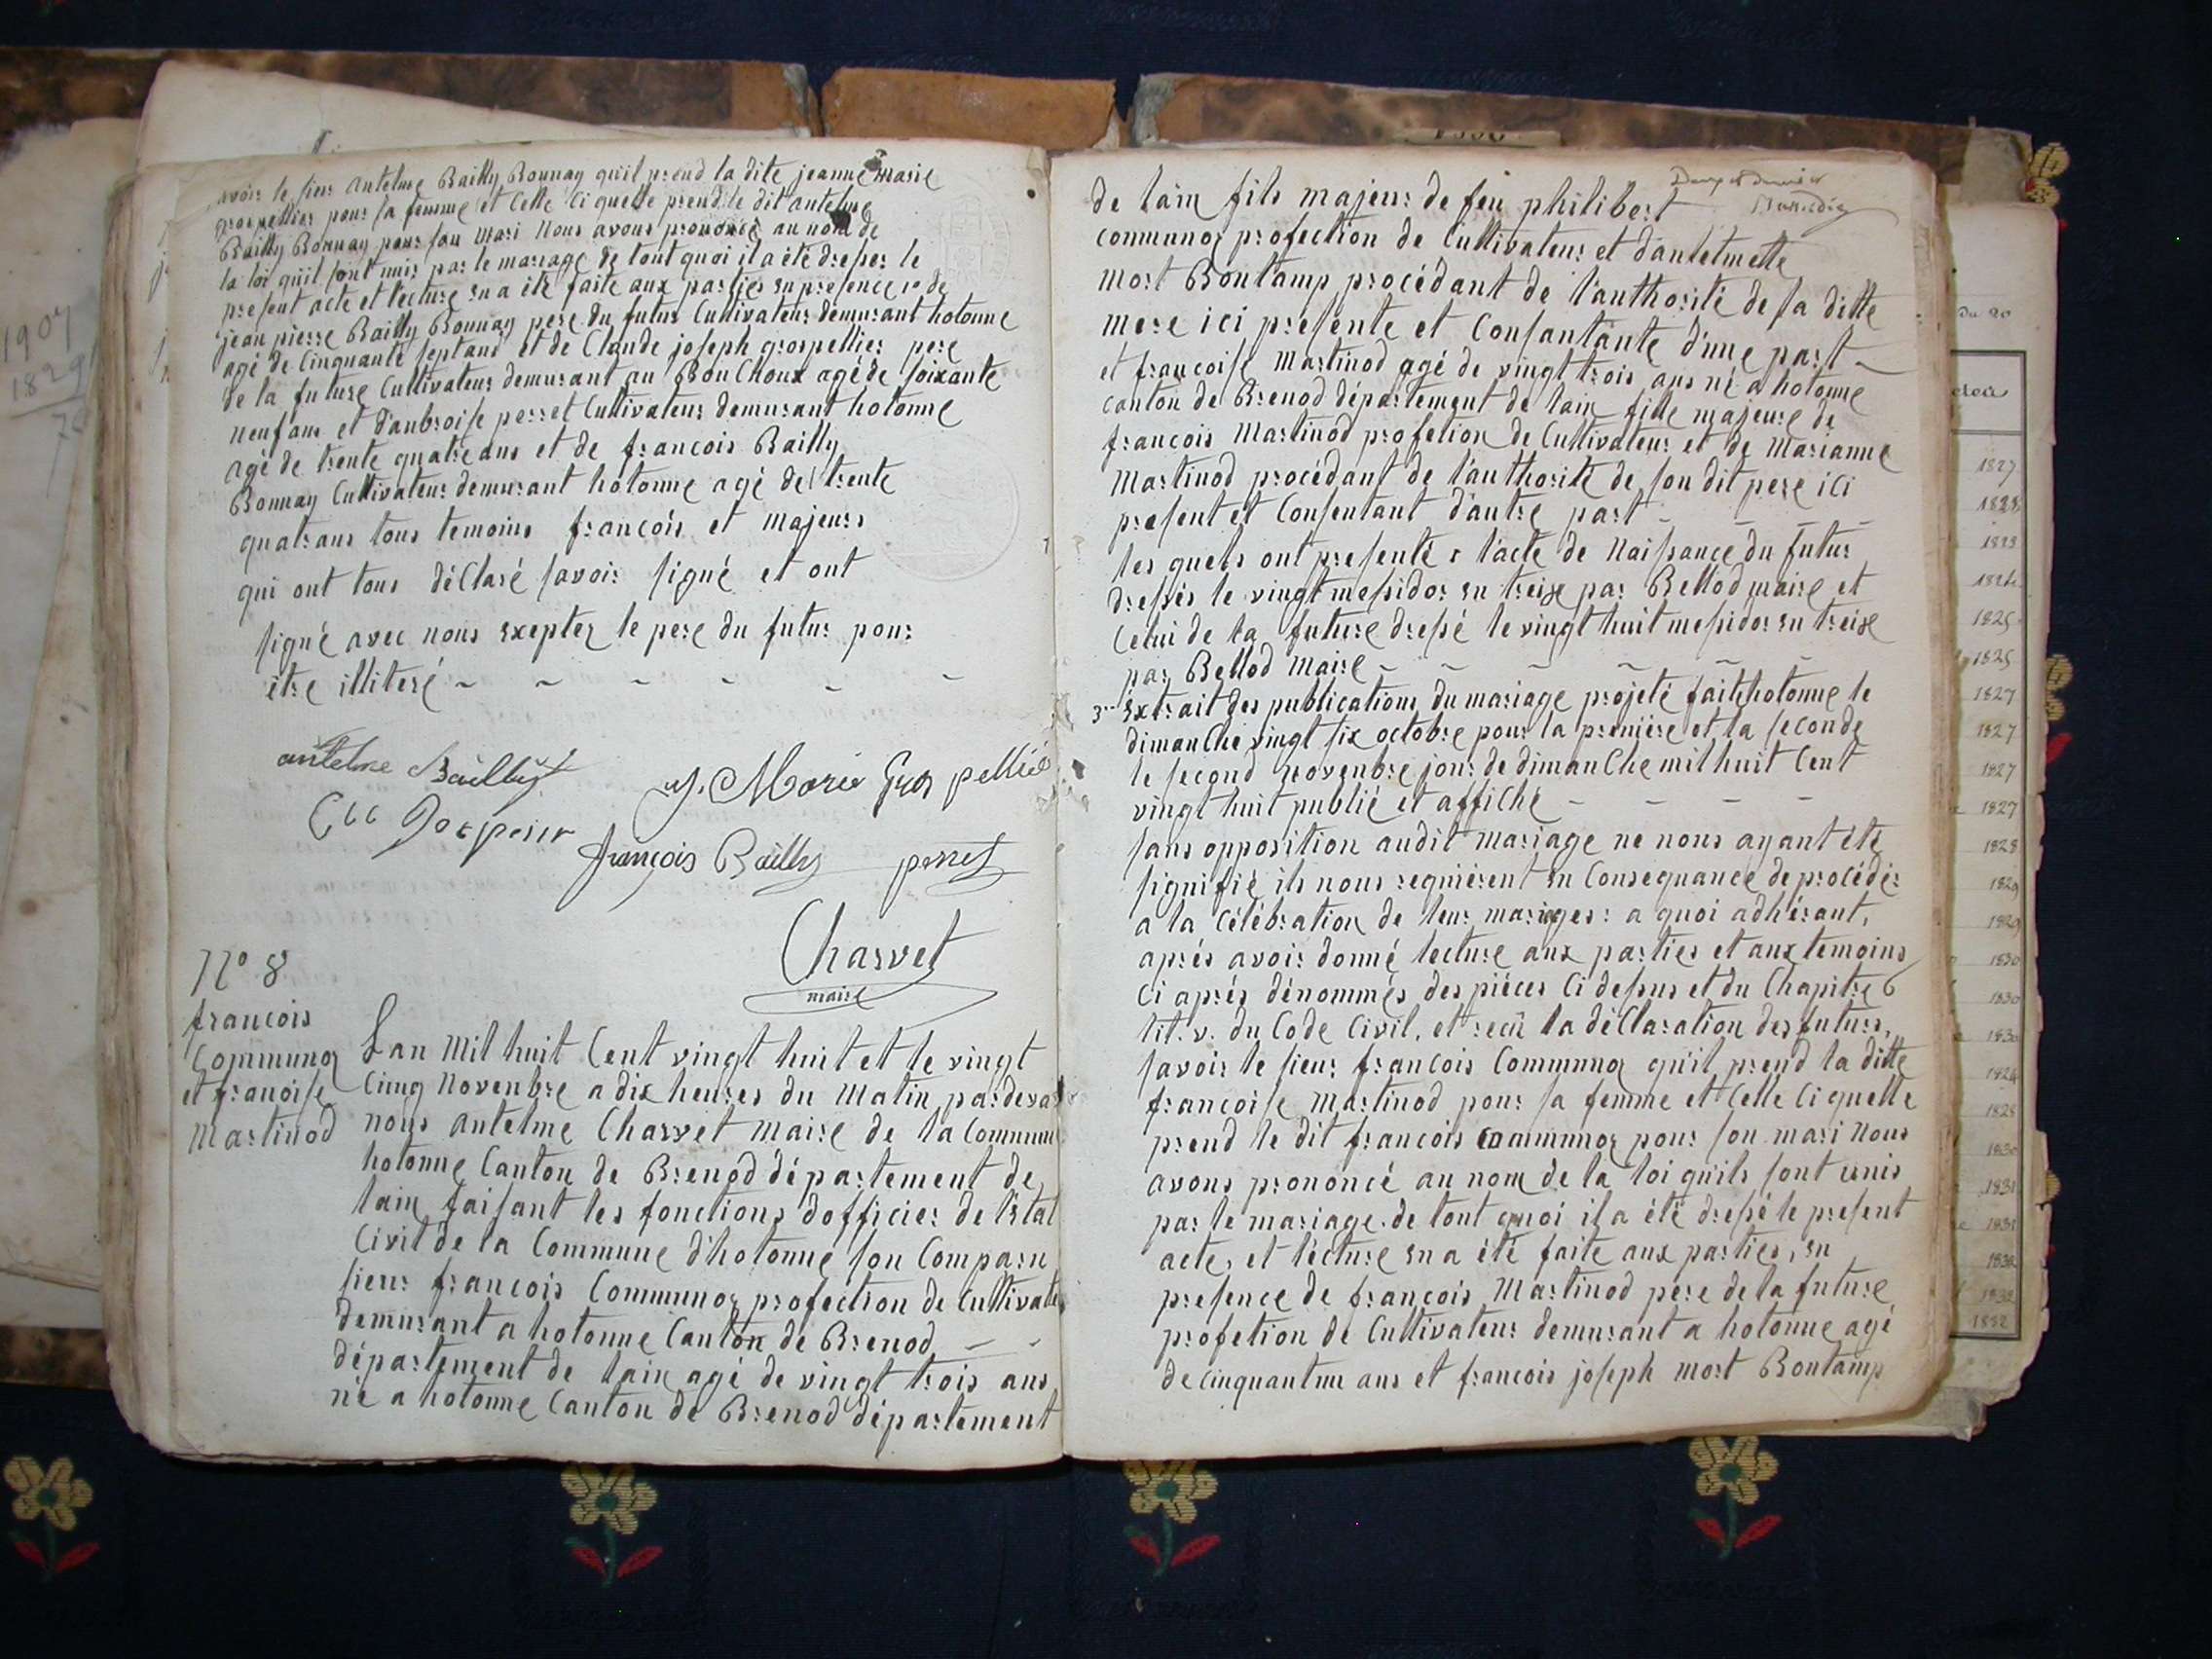 avoir le sieur antelme Bailly Bonnay qu'il prend la dite jeanne marie
grospellier pour sa femme et Celle Ci quelle prend le dit antelme
Bailly Bonnay pour son mari Nous avons prononcé au nom de
la loi qu'il sont unis par le mariage de tout quoi il a été dresser le
present acte et lecture en a été faite aux parties en presence de
jean pierre Bailly Bonnay pere du futur Cultivateur demurant hotonne
agé de Cinquante sept ans et de Claude joseph grospellier pere
de la future Cultivateur demurant au Bouchoux agé de soixante
neuf ans et d'anbroise perret Cultivateur demurant hotonne
agé de trente quatre ans et de francois Bailly
Bonnay Cultivateur demurant hotonne agé de trente
quatrans tous temoins francois et majeurs
qui ont tous déClaré savoir signé et ont
signé avec nous exepter le pere du futur pour
être illiteré
antelme Bailly
J. Marie Gros pellier
françois Bailly perret
Charvet
maire
N° 8
francois
Communoz
et franoise
Martinod
Lan Mil huit Cent vingt huit et le vingt
Cinq Novenbre a dix heures du Matin pardeva
nous antelme Charvet Maire de la Commune
hotonne Canton de Brenod département de
lain faisant les fonctions d'officier de l'état
Civil de la Commune d'hotonne son Comparu
sieur francois Communoz profection de Cultivate
demurant a hotonne Canton de Brenod
département de lain agé de vingt trois ans
né a hotonne Canton de Brenod département
de lain fils majeur de feu philibert
Communoz profection de Cultivateur et d'antelmette
mort Bontamp procédant de l'authorité de sa ditte
mere ici présente et Consantante d'une part
et francoise Martinod agé de vingt trois ans né a hotonne
Canton de Brenod département de lain fille majeure de
francois Martinod profetion de Cultivateur et de Marianne
Martinod procédant de l'authorité de son dit pere ici
present et Consentant d'autre part
les quels ont presenté l'acte de Naissance du futur
dressés le vingt messidor en treize par Bellod maire et
Celui de la future dressé le vingt huit messidor en treize
par Bellod Maire
3 Extrait des publications du mariage projeté fait hotonne le
dimanche vingt six octobre pour la première et la seconde
le second novenbre jour de dimanche mil huit Cent
vingt huit publié et affiché
sans opposition audit mariage ne nous ayant été
signifié ils nous requièrent en Consequance de procéder
a la Célébration de leur mariages: a quoi adhérant,
aprés avoir donné lecture aux parties et aux temoins
Ci aprés dénommés des pièces Ci dessus et du Chapitre 6
tit. v. du Code Civil, et reçû la déClaration des futurs,
savoir le sieur francois Communoz qu'il prend la ditte
francoise Martinod pour sa femme et Celle Ci quelle
prend le dit francois Communoz pour son mari Nous
avons prononcé au nom de la loi qu'ils sont unis
par le mariage. de tout quoi il a été dressé le present
acte, et lecture en a été faite aux parties, en
presence de francois Martinod pere de la future
profetion de Cultivateur demurant a hotonne agé
de Cinquantun ans et francois joseph mort Bontamp
1907
1829
du 20
1827
1828
1827
1827
1827
1827
1828
1829
1829
1830
1830
1830
1828
1830
1831
1831
1832
1832
1832